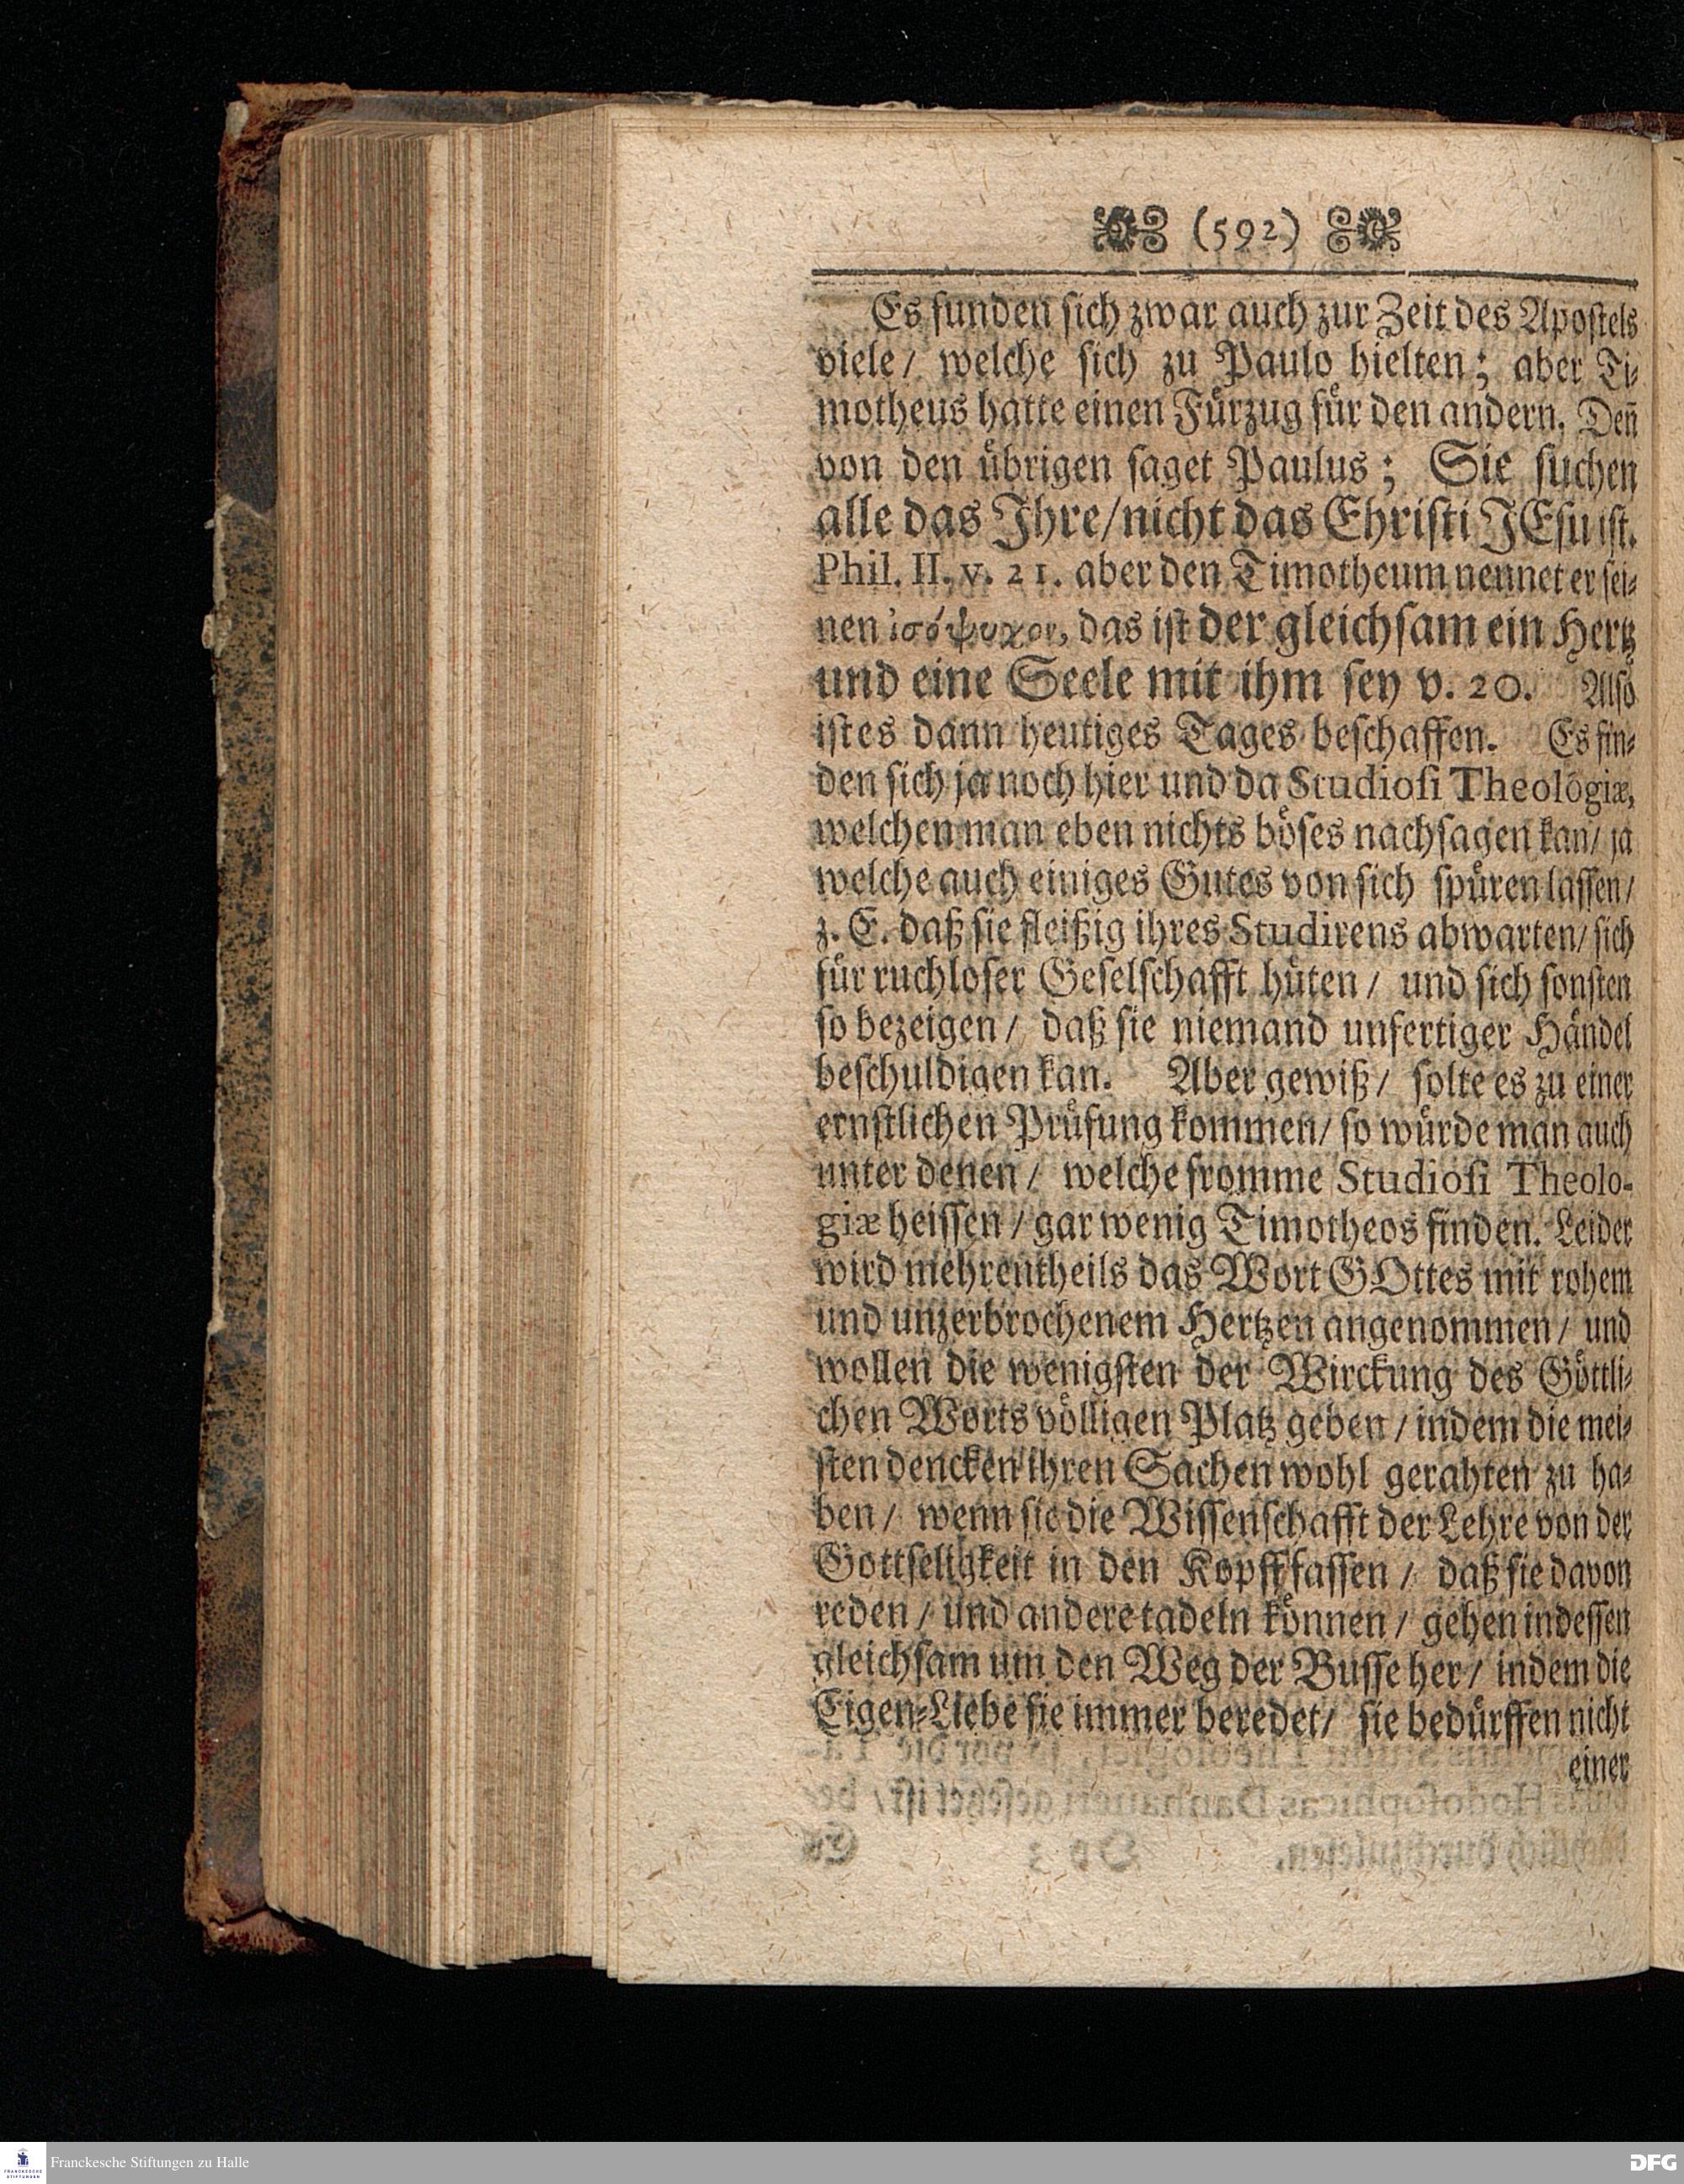 (592)
Es funden sich zwar auch zur Zeit des Apostels
viele / welche sich zu Paulo hielten; aber Ti-
motheus hatte einen Fürzug für den andern. Deñ
von den übrigen saget Paulus; Sie suchen
alle das Ihre / nicht das Christi JEsu ist.
Phil. II. v. 21. aber den Timotheum nennet er sei-
nen ἰσόψυχον, das ist der gleichsam ein Hertz
und eine Seele mit ihm sey v. 20. Also
ist es dann heutiges Tages beschaffen. Es fin-
den sich ja noch hier und da Studiosi Theologiæ,
welchen man eben nichts böses nachsagen kan / ja
welche auch einiges Gutes von sich spüren lassen /
z. E. daß sie fleißig ihres Studirens abwarten / sich
für ruchloser Geselschafft hüten / und sich sonsten
so bezeigen / daß sie niemand unfertiger Händel
beschuldigen kan. Aber gewiß / solte es zu einer
ernstlichen Prüfung kommen / so würde man auch
unter denen / welche fromme Studiosi Theolo-
giæ heissen / gar wenig Timotheos finden. Leider
wird mehrentheils das Wort GOttes mit rohem
und unzerbrochenem Hertzen angenommen / und
wollen die wenigsten der Wirckung des Göttli-
chen Worts völligen Platz geben / indem die mei-
sten dencken ihren Sachen wohl gerahten zu ha-
ben / wenn sie die Wissenschafft der Lehre von der
Gottseligkeit in den Kopff fassen / daß sie davon
reden / und andere tadeln können / gehen indessen
gleichsam um den Weg der Busse her / indem die
Eigen-Liebe sie immer beredet / sie bedürffen nicht
einer
Franckesche Stiftungen zu Halle
DFG